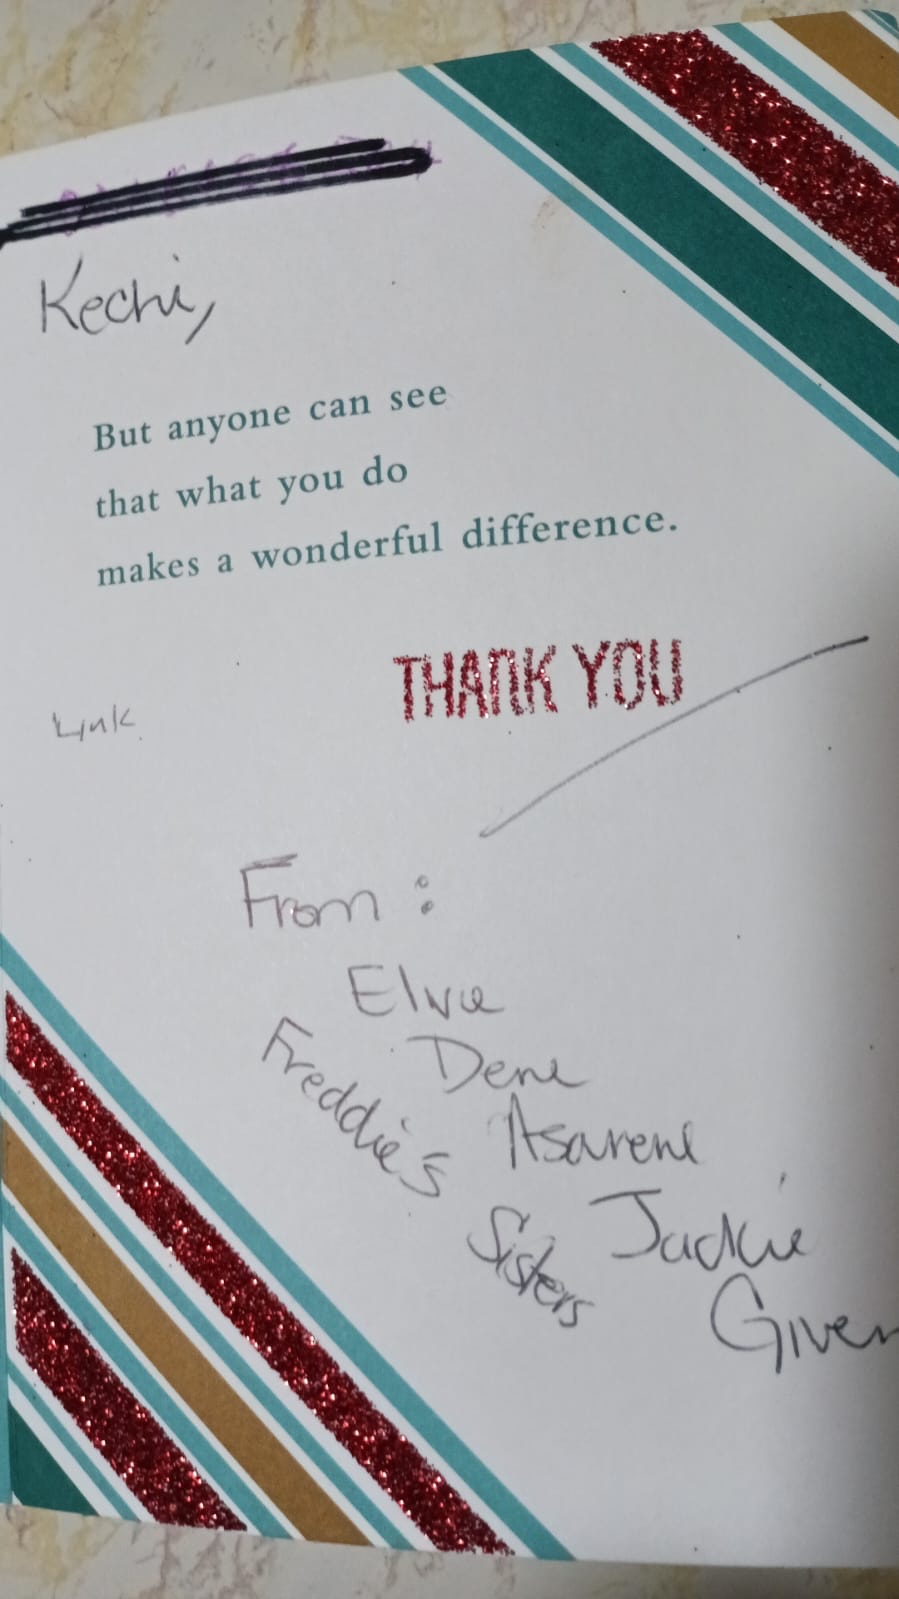 Kechi,
But anyone can see
that what you do
makes a wonderful difference.
THANK YOU
From :
Elvie
Dene
Asarene
Jackie
Given
Freddie's
Sisters